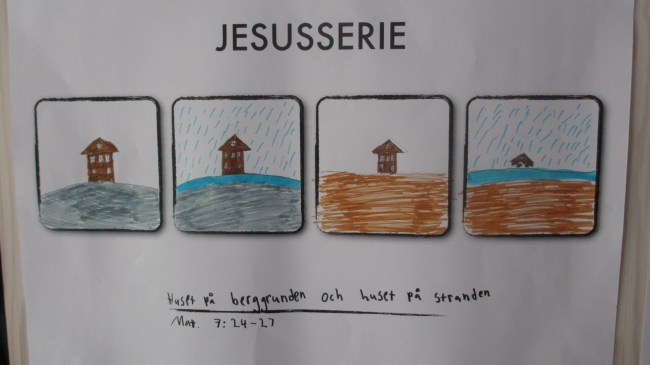 JESUSSERIE
Huset på berggrunden och huset på stranden
Mat. 7:24-27